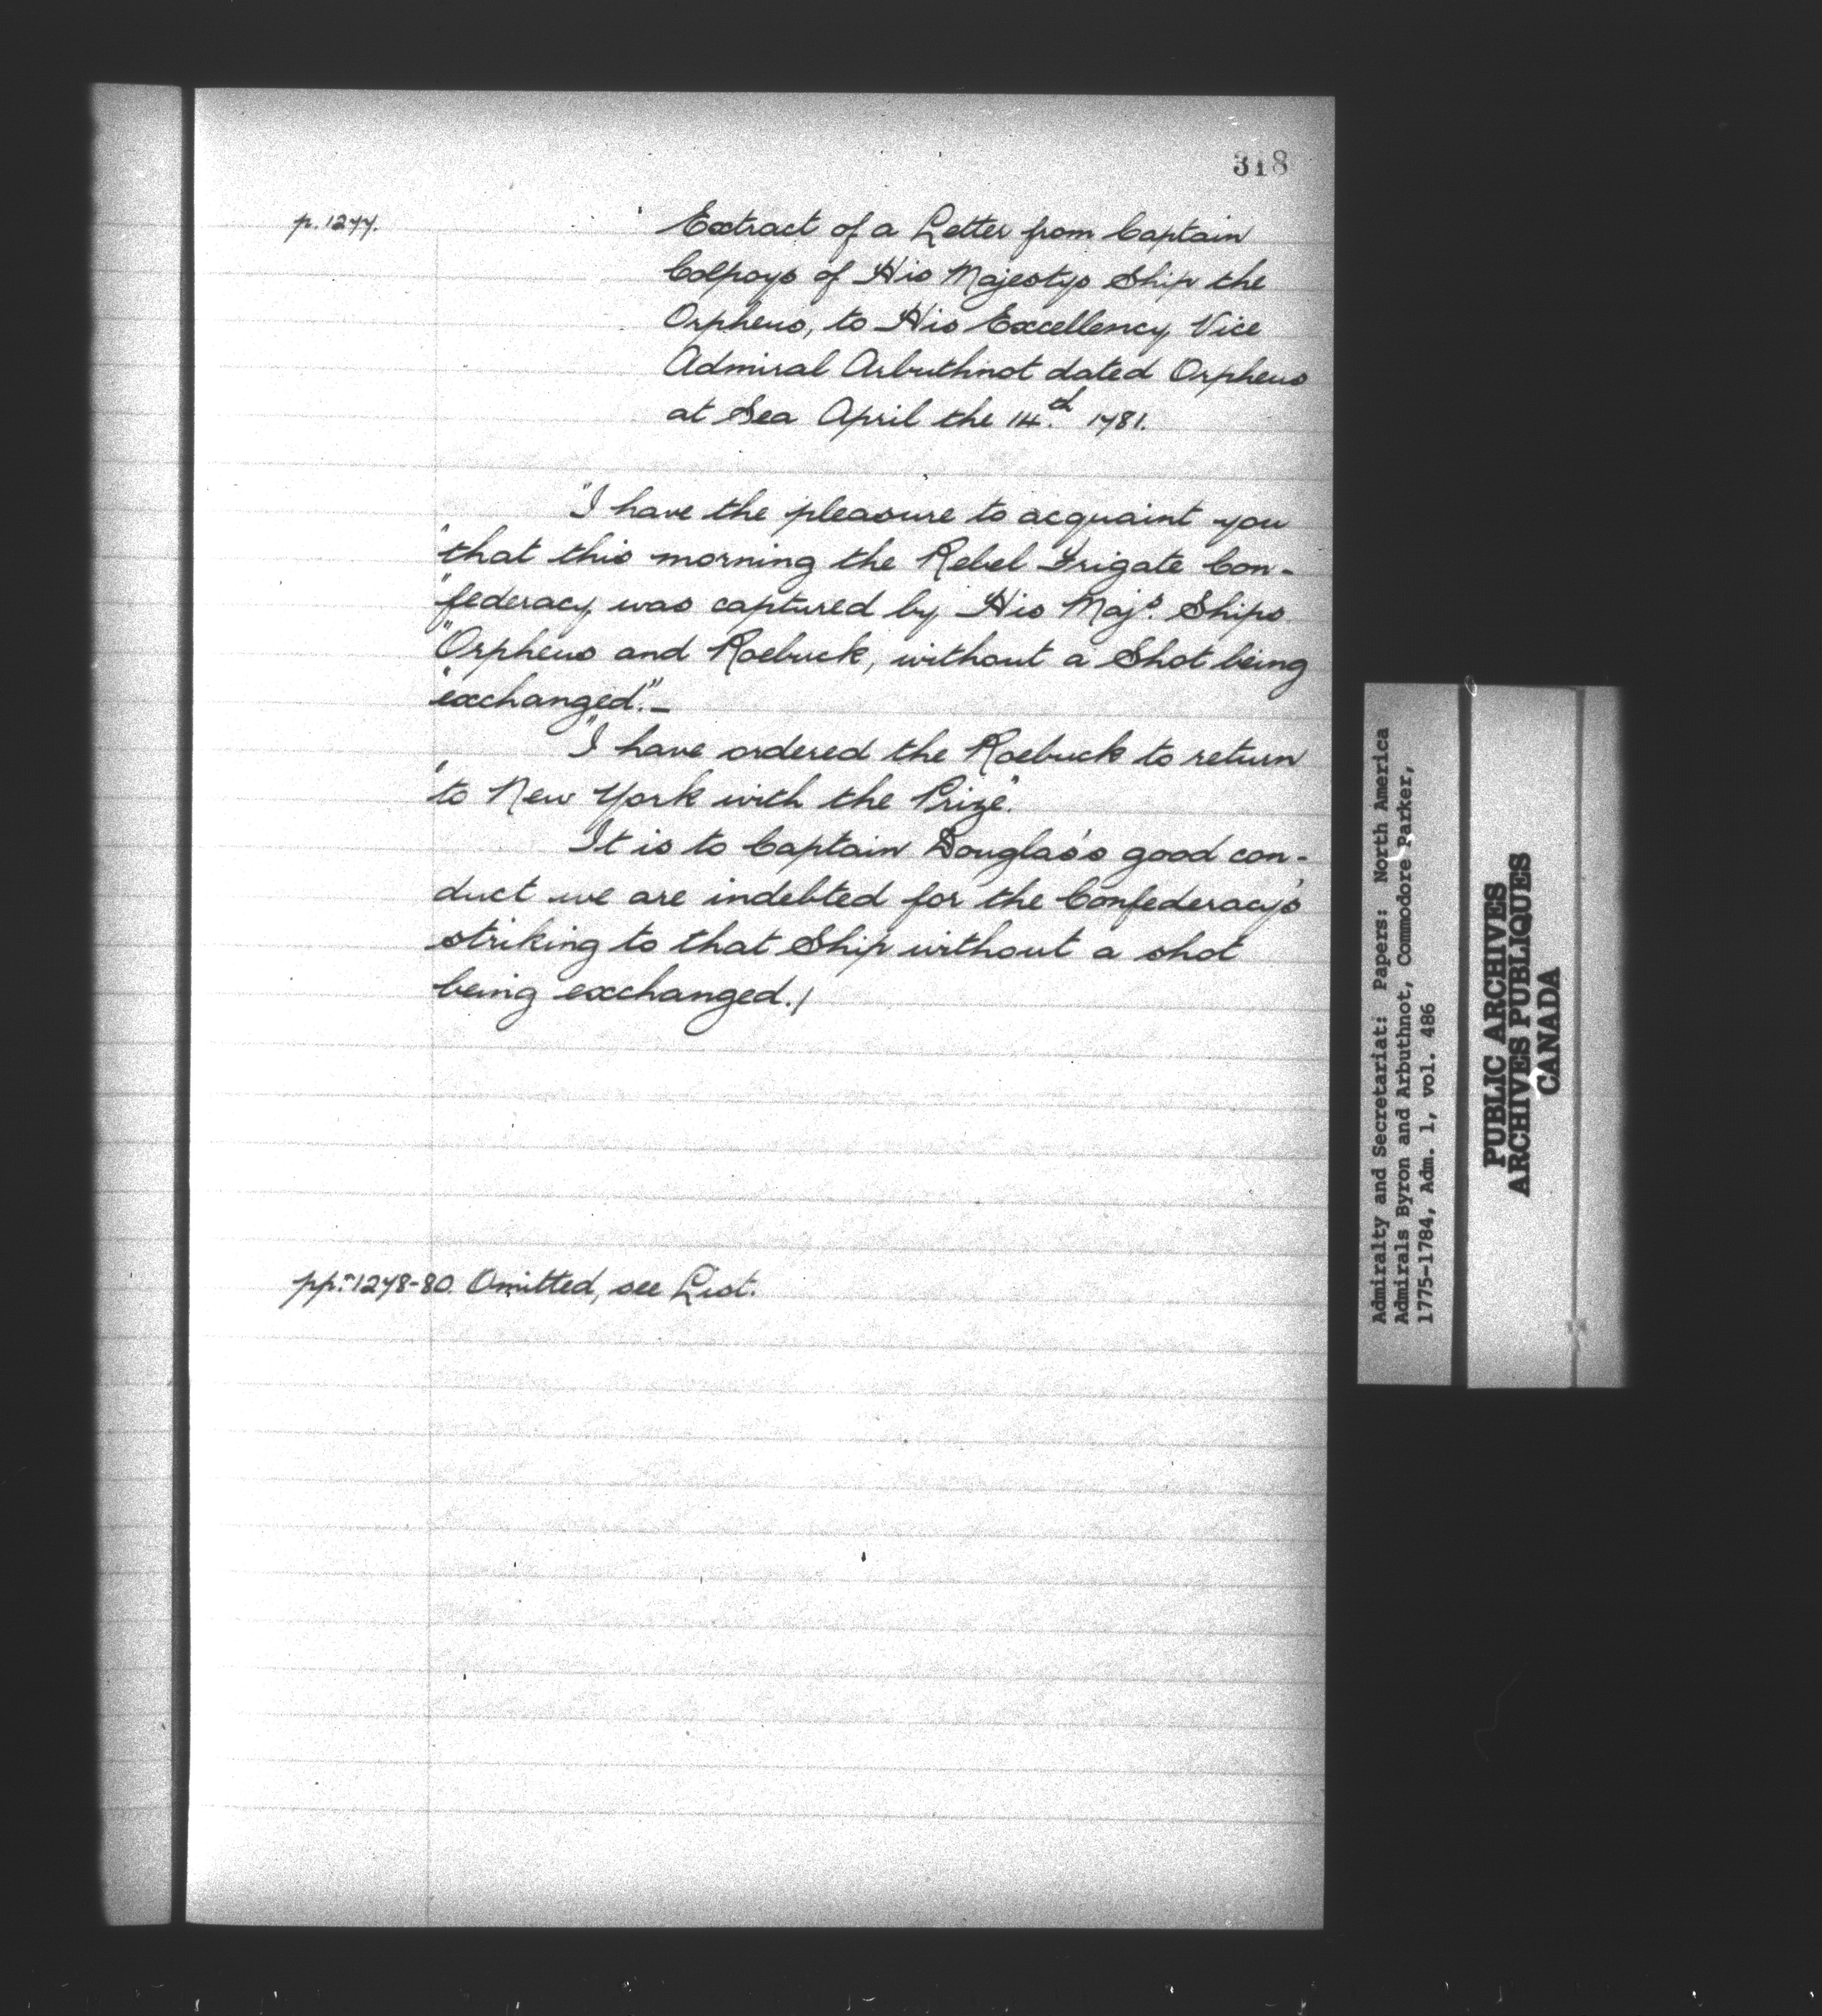 318
p. 1277.
Extract of a Letter from Captain
Colpoys of His Majestys Ship the
Orpheus, to His Excellency Vice
Admiral Arbuthnot dated Orpheus
at Sea April the 14.th 1781.
"I have the pleasure to acquaint you
"that this morning the Rebel Frigate Con-
"federacy was captured by His Maj.s Ships
"Orpheus and Roebuck, without a Shot being
"exchanged".-
"I have ordered the Roebuck to return
"to New York with the Prize".
It is to Captain Douglas's good con-
duct we are indebted for the Confederacy's
striking to that Ship without a shot
being exchanged./
pp. 1278-80. Omitted, see List.
Admiralty and Secretariat: Papers: North America
Admirals Byron and Arbuthnot, Commodore Parker,
1775-1784, Adm. 1, vol. 486
PUBLIC ARCHIVES
ARCHIVES PUBLIQUES
CANADA